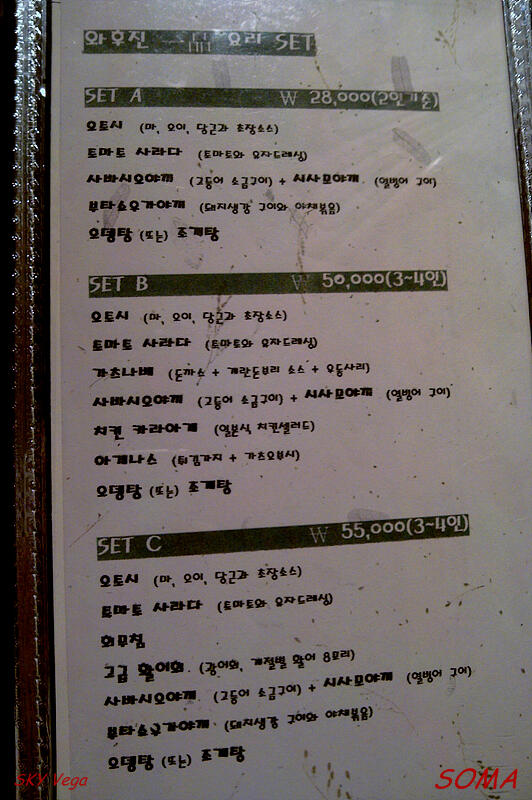 와후진 요리 SET
SET A ₩ 28,000(2인기준)
오토시 (마, 오이, 당근과 초장소스)
토마토 사라다 (토마토와 유자드레싱)
사바시오야끼 (고등어 소금구이) + 시사모야끼 (열빙어 구이)
부타쇼우가야끼 (돼지생강 구이와 야채볶음)
오뎅탕 (또는) 조개탕
SET B ₩ 50,000(3~4인)
오토시 (마, 오이, 당근과 초장소스)
토마토 사라다 (토마토와 유자드레싱)
가츠나베 (돈까스 + 계란돈부리 소스 + 우동사리)
사바시오야끼 (고등어 소금구이) + 시사모야끼 (열빙어 구이)
치킨 카라아게 (일본식 치킨샐러드)
아게나스 (튀김가지 + 가츠오부시)
오뎅탕 (또는) 조개탕
SET C ₩ 55,000(3~4인)
오토시 (마, 오이, 당근과 초장소스)
토마토 사라다 (토마토와 유자드레싱)
회무침
고급 활어회 (광어회, 계절별 활어 8모리)
사바시오야끼 (고등어 소금구이) + 시사모야끼 (열빙어 구이)
부타쇼우가야끼 (돼지생강 구이와 야채볶음)
오뎅탕 (또는) 조개탕
SKY Vega
SOMA